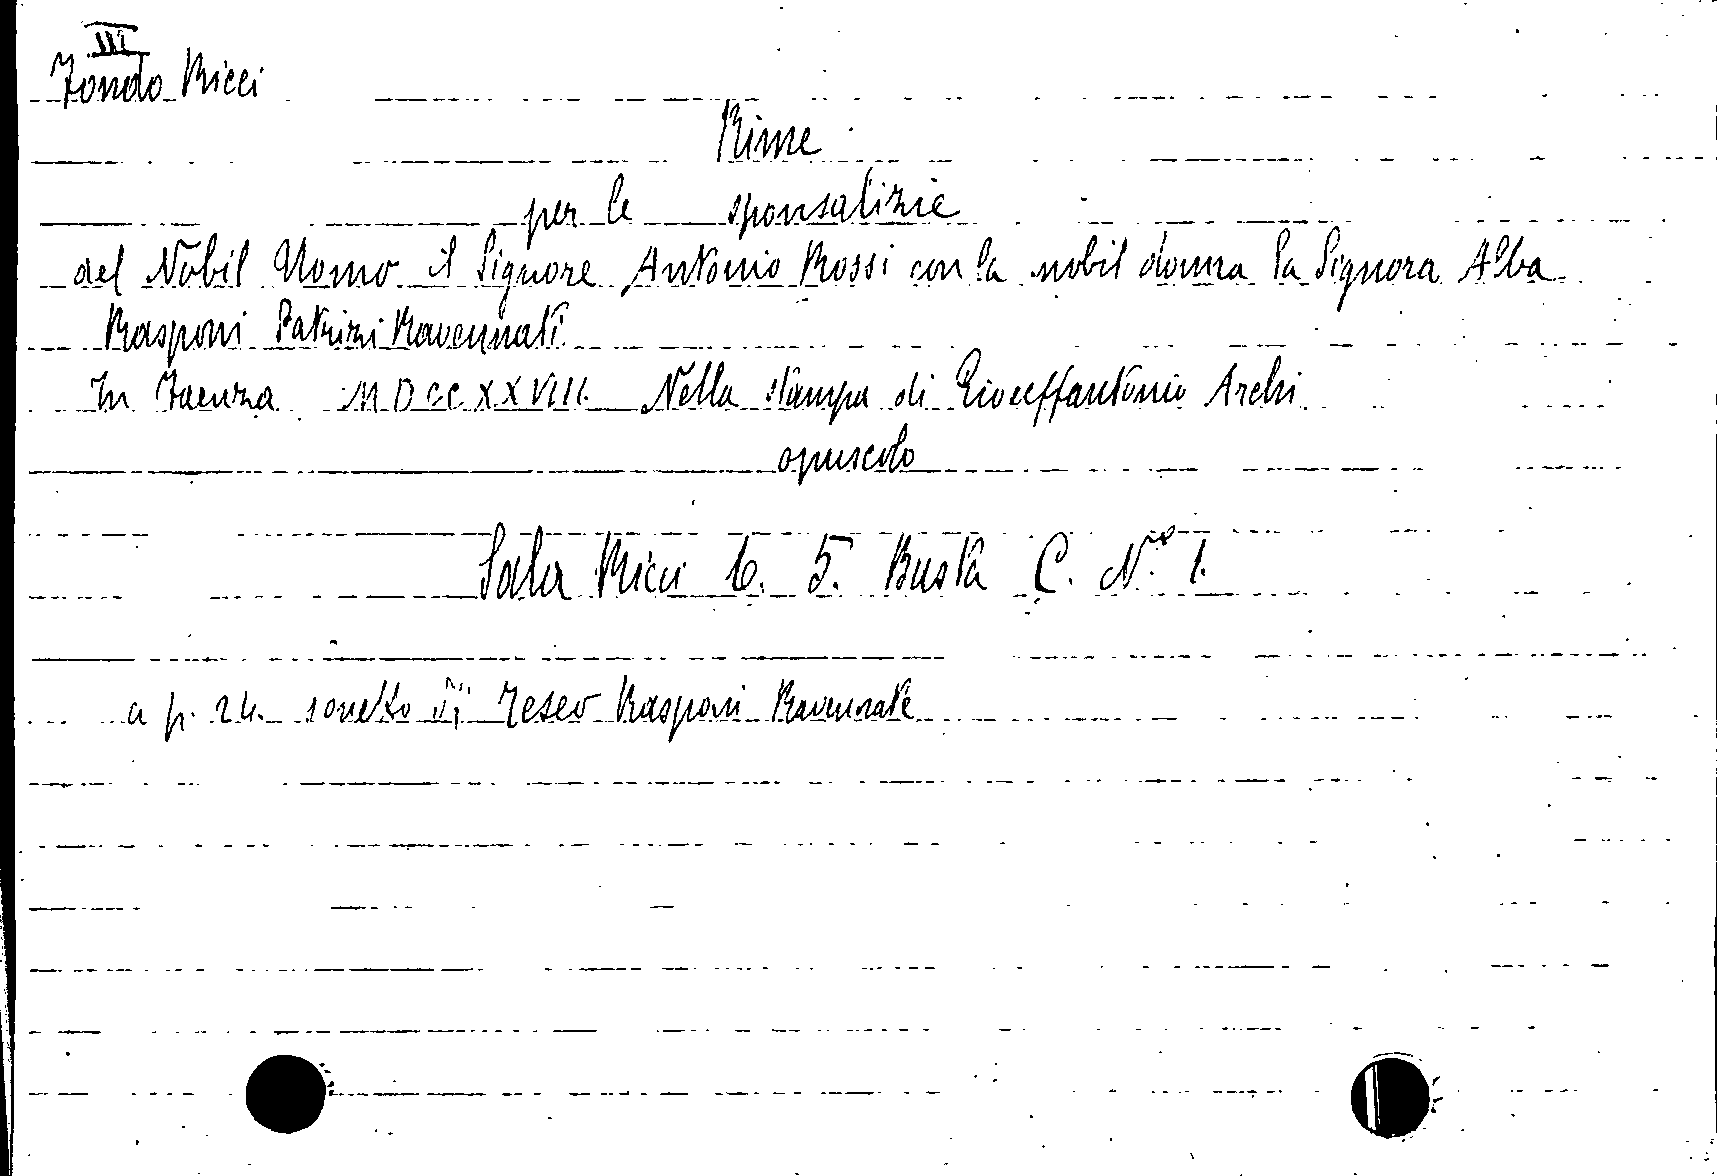 III
Fondo Ricci
Rime
per le sponsalizie
del Nobil Uomo il Signore Antonio Rossi con la nobil donna la Signora Alba
Rasponi Patrizi Ravennati
In Faenza MDCCXXVIII. Nella stampa di Gioseffantonio Archi
opuscolo
Sala Ricci 6. 5. Busta C. N.ro 1.
a p. 24. sonetto di Teseo Rasponi Ravennate